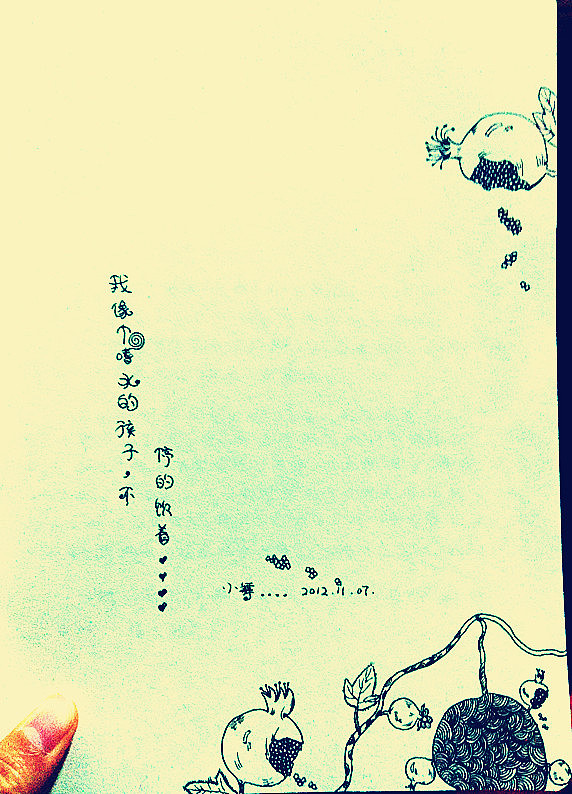 我像个嗜水的孩子，不
停的饮着
小 .... 2012.11.07.